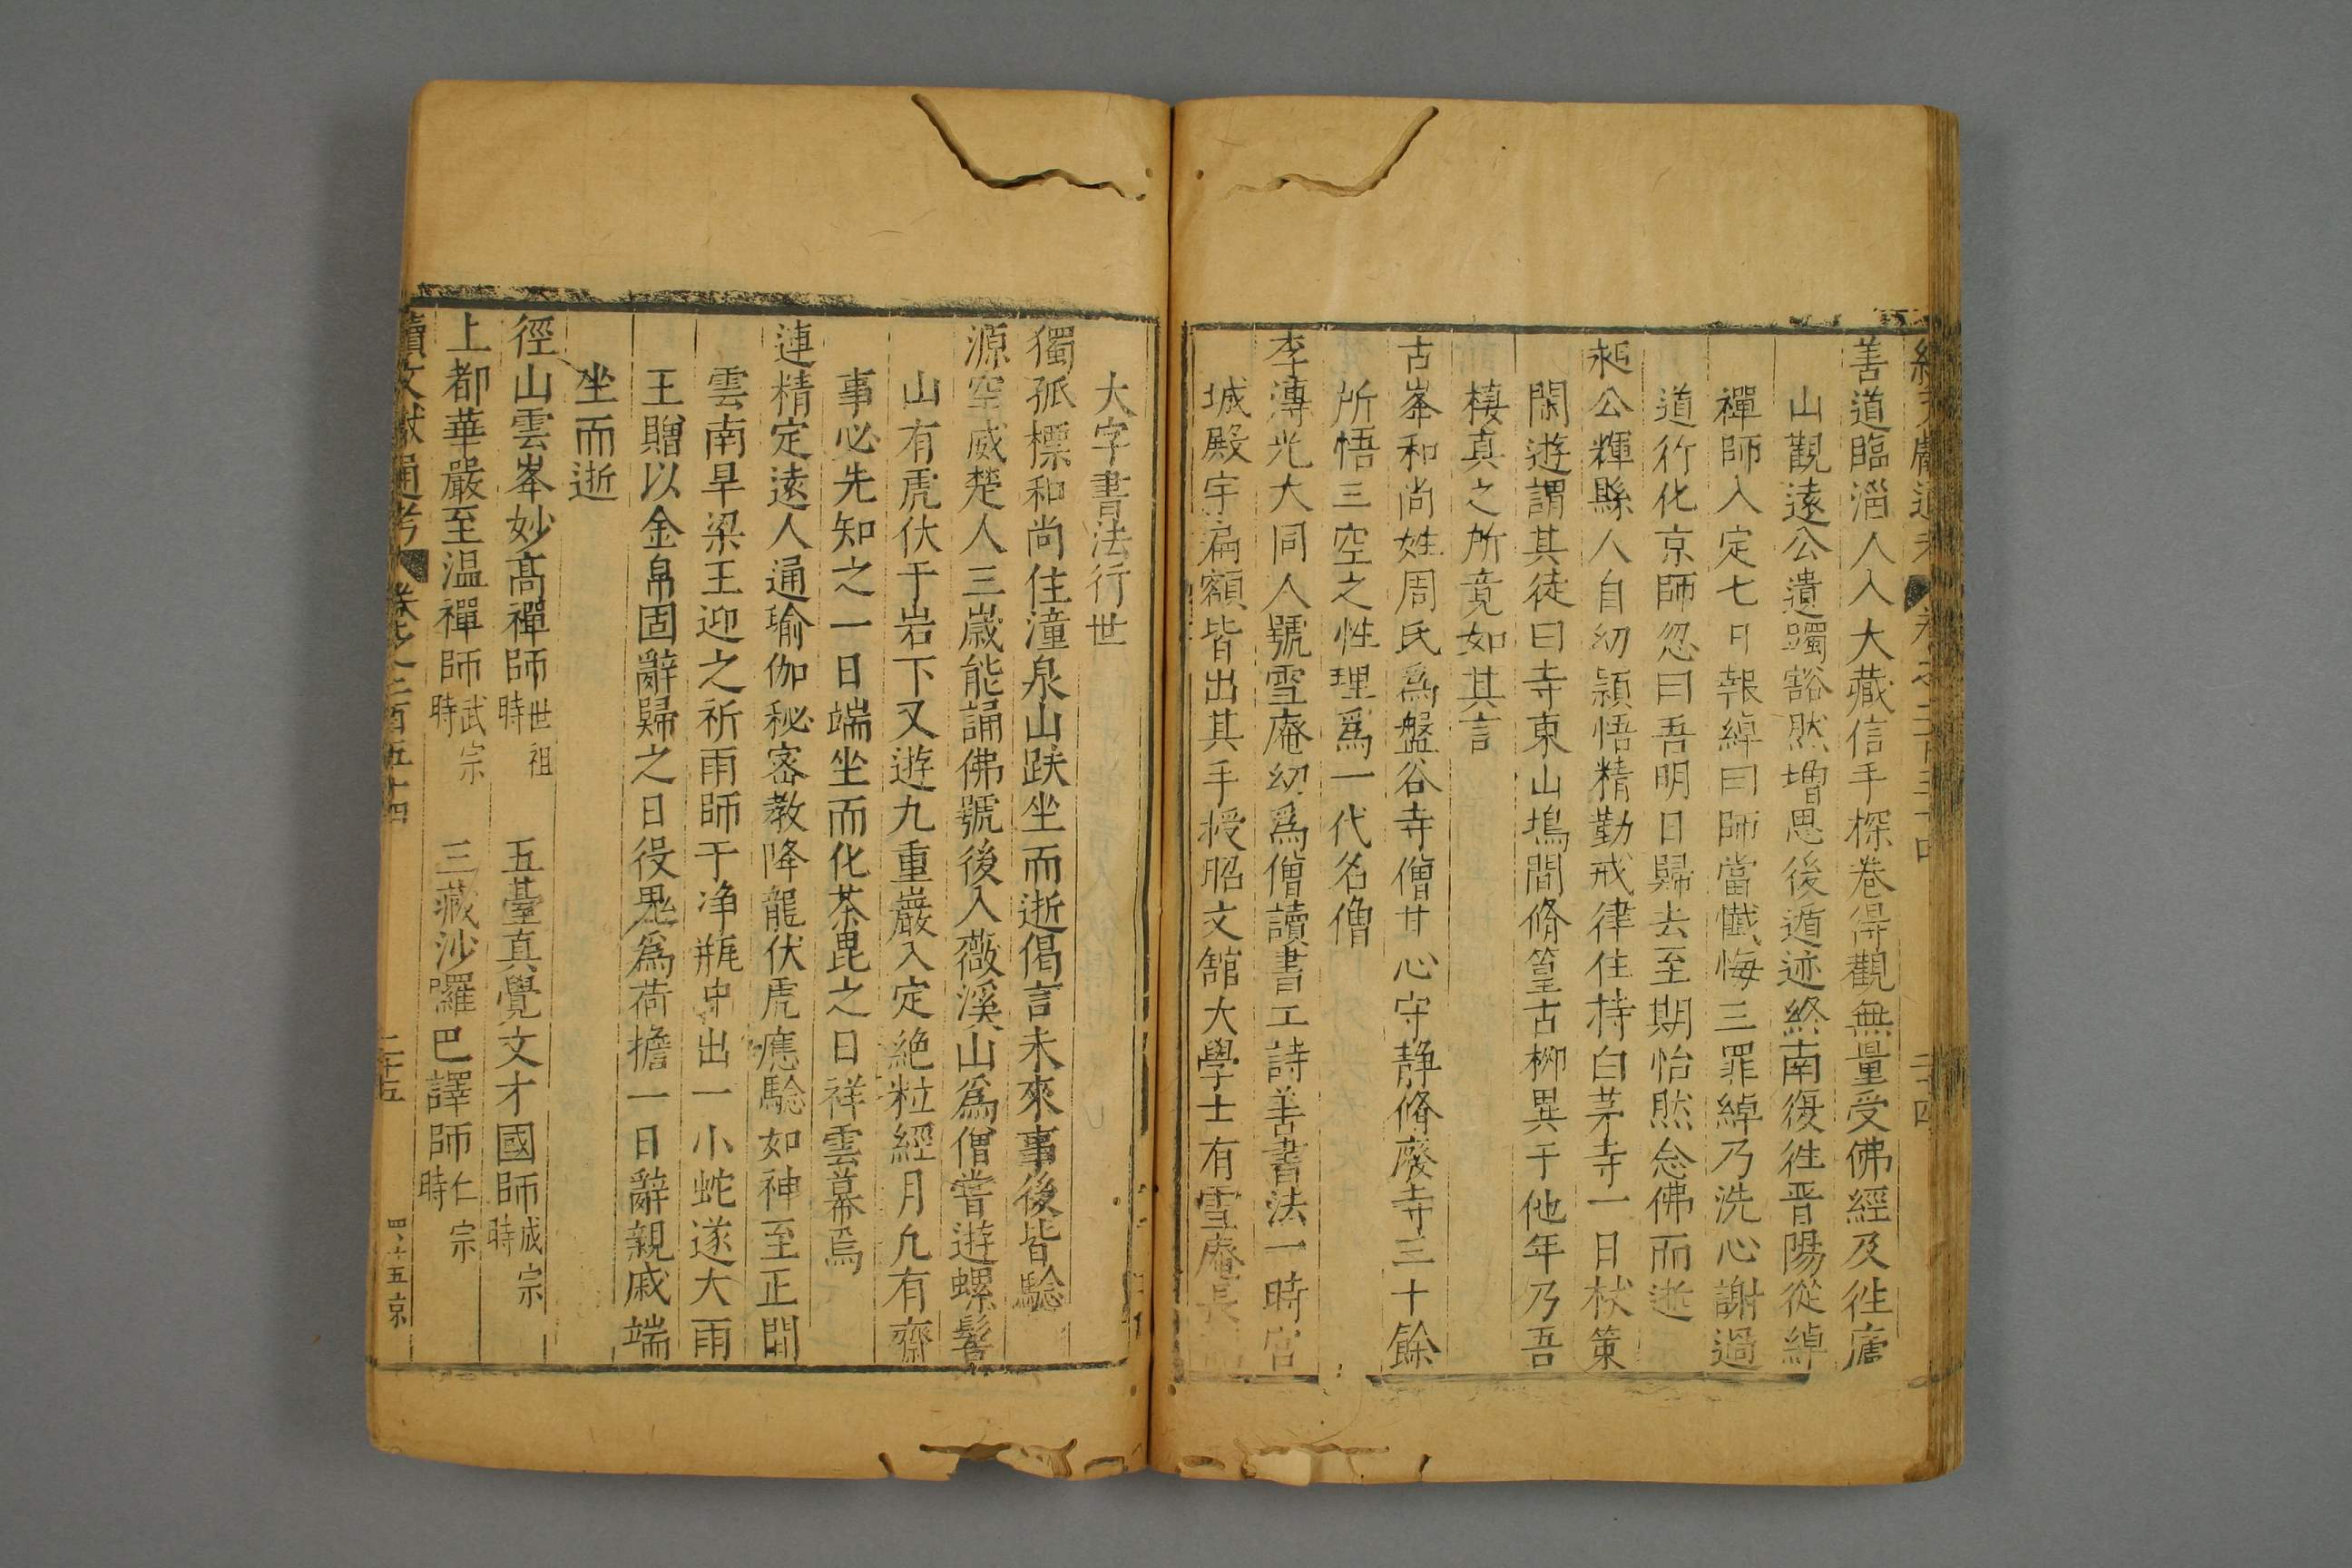 善道臨淄人入大藏信手探卷得觀無量受佛經及徃廬
山觀遠公遺躅豁然增思後遁迹終南復徃晋陽從綽
禪師入定七日報綽曰師當懺悔三罪綽乃洗心謝過
道行化京師忽曰吾明日歸去至期怡然念佛而逝
昶公輝縣人自幼頴悟精勤戒律住持白茅寺一日杖策
閑遊謂其徒曰寺東山塢間脩篁古栁異于他年乃吾
棲真之所竟如其言
古峯和尚姓周氏爲盤谷寺僧甘心守静脩廢寺三十餘
所悟三空之性理爲一代名僧
李溥光大同人號雪庵幼爲僧讀書工詩善書法一時宫
城殿宇扁額皆出其手授昭文舘大學士有雪庵長
大字書法行世
獨孤標和尚住潼泉山趺坐而逝偈言未來事後皆驗
源空威楚人三嵗能誦佛號後入薇溪山爲僧嘗遊螺髻
山有虎伏于岩下又遊九重巖入定絶粒經月凢有齋
事必先知之一日端坐而化茶毘之日祥雲幕焉
連精定遠人通瑜伽秘密教降龍伏虎應驗如神至正間
雲南旱梁王迎之祈雨師于净瓶中出一小蛇遂大雨
王贈以金帛固辭歸之日役鬼爲荷擔一日辭親戚端
坐而逝
徑山雲峯妙髙禪師世祖時 五臺真覺文才國師成宗時
上都華嚴至温禪師武宗時 三藏沙囉巴譯師仁宗時
續文獻通考 卷之二百五十四 二十五 四十五京